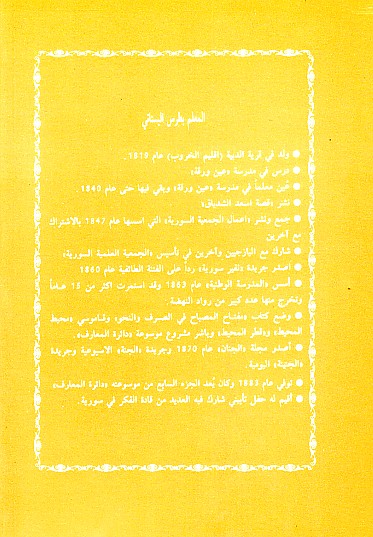 المعلم بطرس البستاني
● ولد في قرية الدبية (اقليم الخروب) عام 1819.
● درس في مدرسة «عين ورقة»
● عُين معلماً في مدرسة «عين ورقة» وبقي فيها حتى عام 1840.
● نشر «قصة اسعد الشدياق»
● جمع ونشر «اعمال الجمعية السورية» التي اسسها عام 1847 بالاشتراك
مع آخرين
● شارك مع اليازجيين وآخرين في تأسيس «الجمعية العلمية السورية»
● أصدر جريدة «نفير سورية» رداً على الفتنة الطائفية عام 1860
● أسس «المدرسة الوطنية» عام 1863 وقد استمرت اكثر من 15 عـامـاً
وتخرج منها عدد كبير من رواد النهضة.
● وضع كتاب «مفتاح المصباح في الصرف والنحو» وقاموسي «محيط
المحيط» و«قطر المحيط» وباشر مشروع موسوعة «دائرة المعارف».
● أصدر مجلة «الجنان» عام 1870 وجريدة «الجنة» الاسبوعية وجريدة
«الجنينة» اليومية.
● توفي عام 1883 وكان يُعد الجزء السابع من موسوعته «دائرة المعارف»
● أقيم له حفل تأبيني شارك فيه العديد من قادة الفكر في سورية.